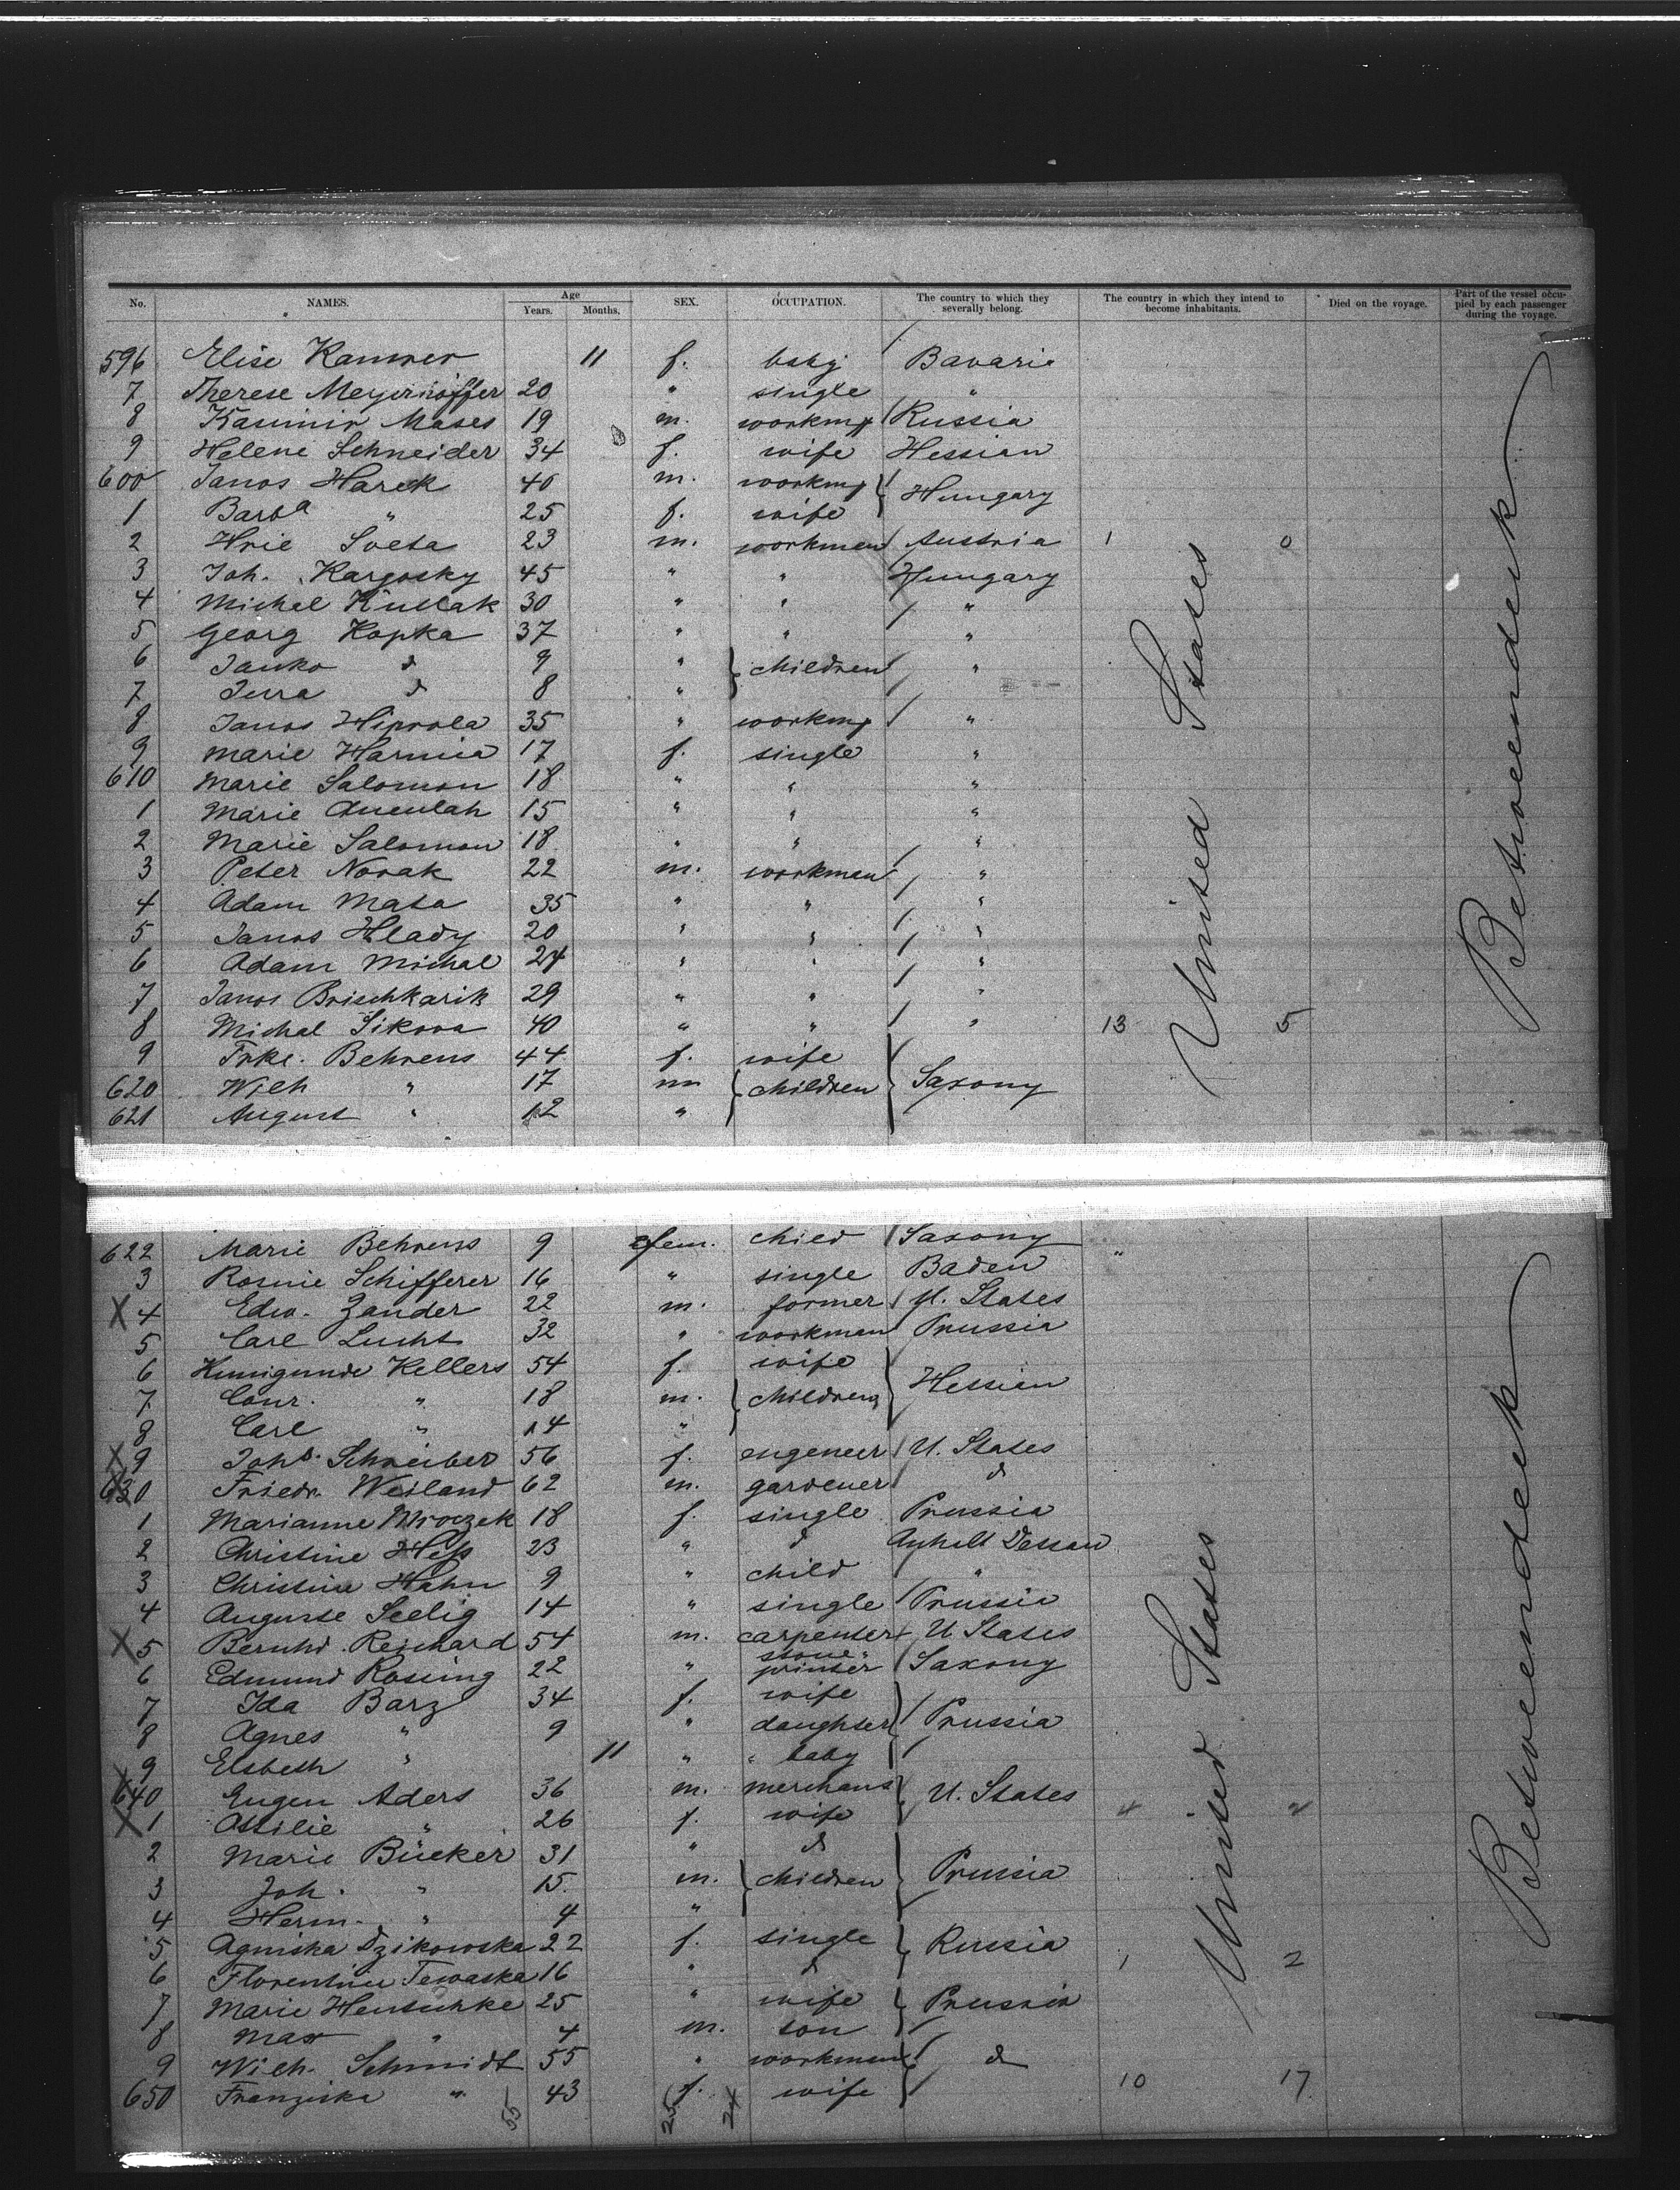 No. NAMES. Age Years. Months. SEX. OCCUPATION. The country to which they severally belong. The country in which they intend to become inhabitants. Died on the voyage. Part of the vessel occupied by each passenger during the voyage.
596 Elise Kamrer 11 f. baby Bavaria
7 Therese Meyerhöffer 20 " single "
8 Kasimir Mases 19 m. workmp Russia
9 Helene Schneider 34 f. wife Hessian
600 Janos Harek 40 m. workmp Hungary
1 Barba " 25 f. wife
2 Hrie Sveta 23 m. workman Austria 1 0
3 Joh. Kargosky 45 " " Hungary
4 Michel Kullak 30 " " "
5 Georg Kopka 37 " " "
6 Janko d 9 " children "
7 Jura d 8 "
8 Janos Hiprola 35 " workmp "
9 Marie Harnua 17 f. single "
610 Marie Salomon 18 " " "
1 Marie 15 " " "
2 Marie Salomon 18 " " "
3 Peter Novak 22 m. workman "
4 Adam Mata 35 " " "
5 Janos Hlady 20 " " "
6 Adam Michal 24 " " "
7 Janos Brischkarik 29 " " "
8 Michal Sikora 40 " " " 13 5
9 Frke. Behrens 44 f. wife
620 Wilh " 17 m children Saxony
621 August " 12 "
United States
Between deck
622 Marie Behrens 9 fem. child Saxony "
3 Rosine Schifferer 16 " single Baden
X 4 Edw. Zander 22 m. former U. States
5 Carl Lucht 32 " workman Prussia
6 Kunigunde Kellers 54 f. wife
7 Conr. " 18 m. children Hessian
8 Carl " 14 "
X 9 Johs. Schreiber 56 f. engeneer U. States
X 630 Friedr. Weiland 62 m. gardener d
1 Marianne Mroczek 18 f. single Prussia
2 Christine Heß 23 " d Anhalt Dessau
3 Christine Hahn 9 " child "
4 Auguste Seelig 14 " single Prussia
X 5 Bernhd. Reichard 54 m. carpenter U States
6 Edmund Rosing 22 " stone- printer Saxony
7 Ida Barz 34 f. wife
8 Agnes " 9 " daughter Prussia
9 Elsbeth " 11 " " baby
X 640 Eugen Aders 36 m. merchant U. States 4 4
X 1 Ottilie " 26 f. wife
2 Marie Bücker 31 " d
3 Joh. " 15. m. children Prussia
4 Herm. " 4 "
5 Agniska Dzikowska 22 f. single Russia 1 2
6 Florentine Tewaska 16 " d
7 Marie Hentschke 25 " wife Prussia
8 Max " 4 m. son
9 Wilh. Schmidt 55 " workman d
650 Franziska " 43 f. wife 10 17
55 25 24
United States
Between deck